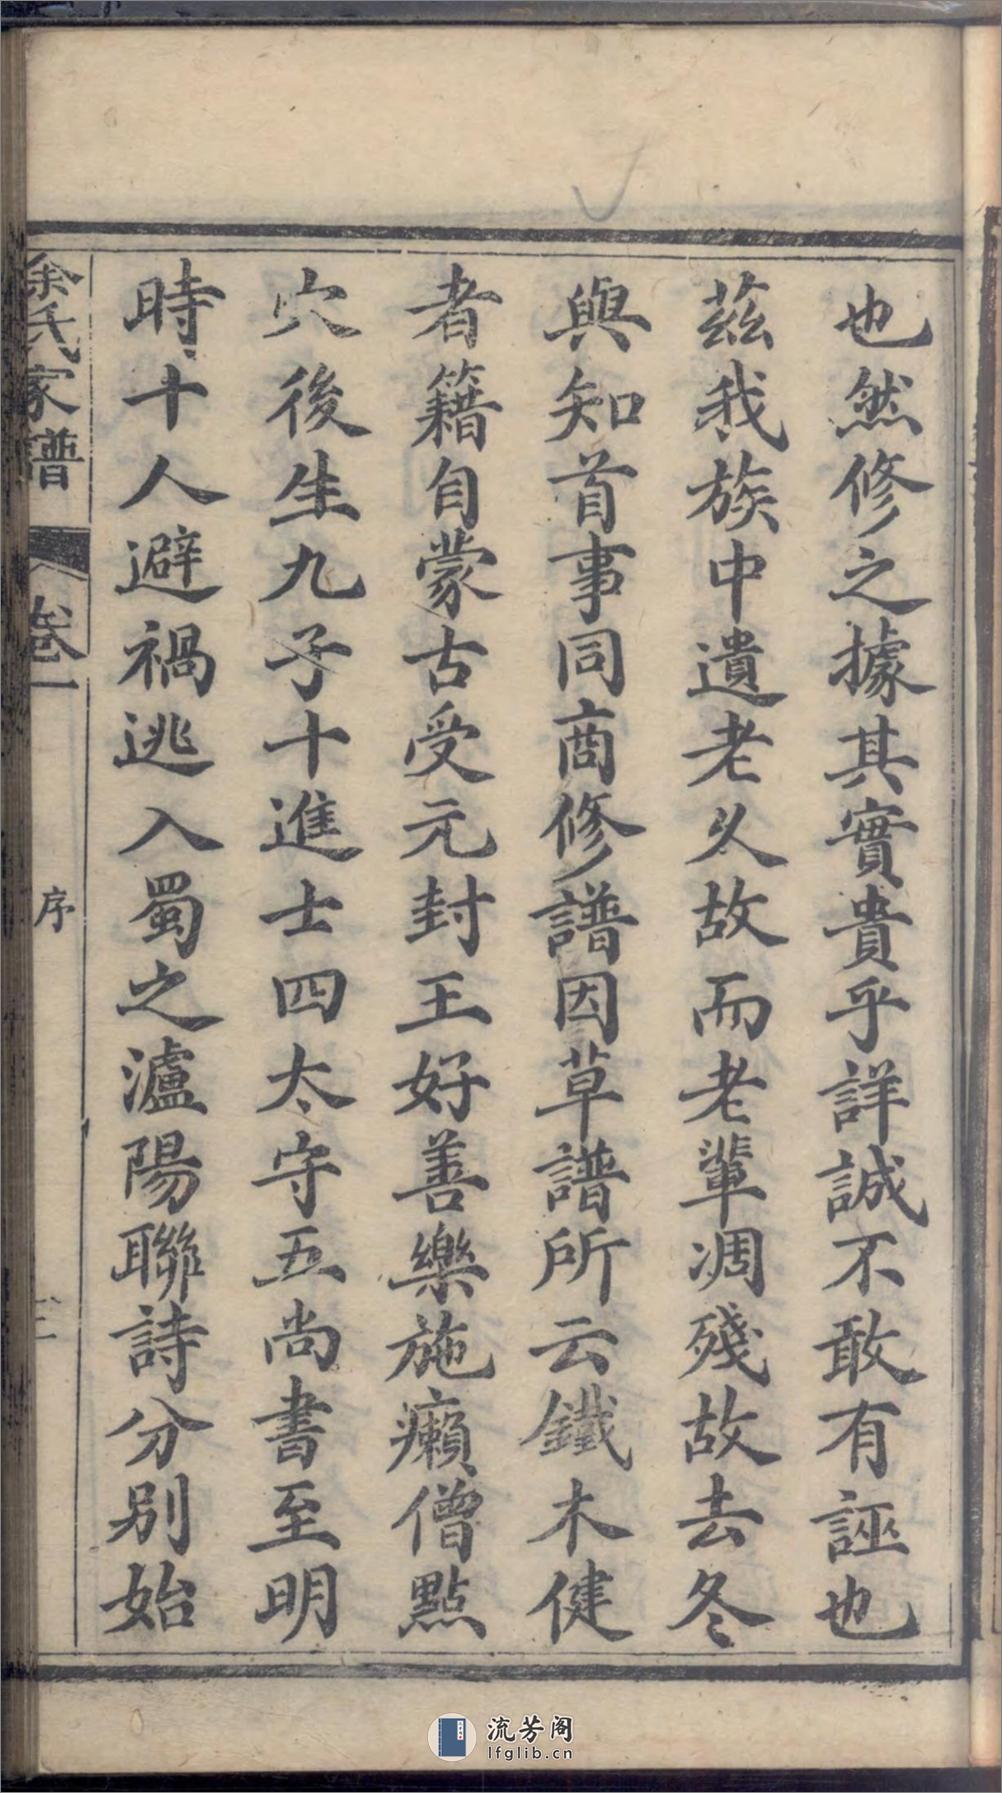 也然修之據其實貴乎詳誠不敢有誣也
茲我族中遺老久故而老輩凋殘故去冬
與知首事同商修譜因草譜所云鐵木健
者籍自蒙古受元封王好善樂施癩僧點
穴後生九子十進士四太守五尚書至明
時十人避禍逃入蜀之瀘陽聯詩分別始
余氏家譜
卷一
序
三
流芳阁
lfglib.cn